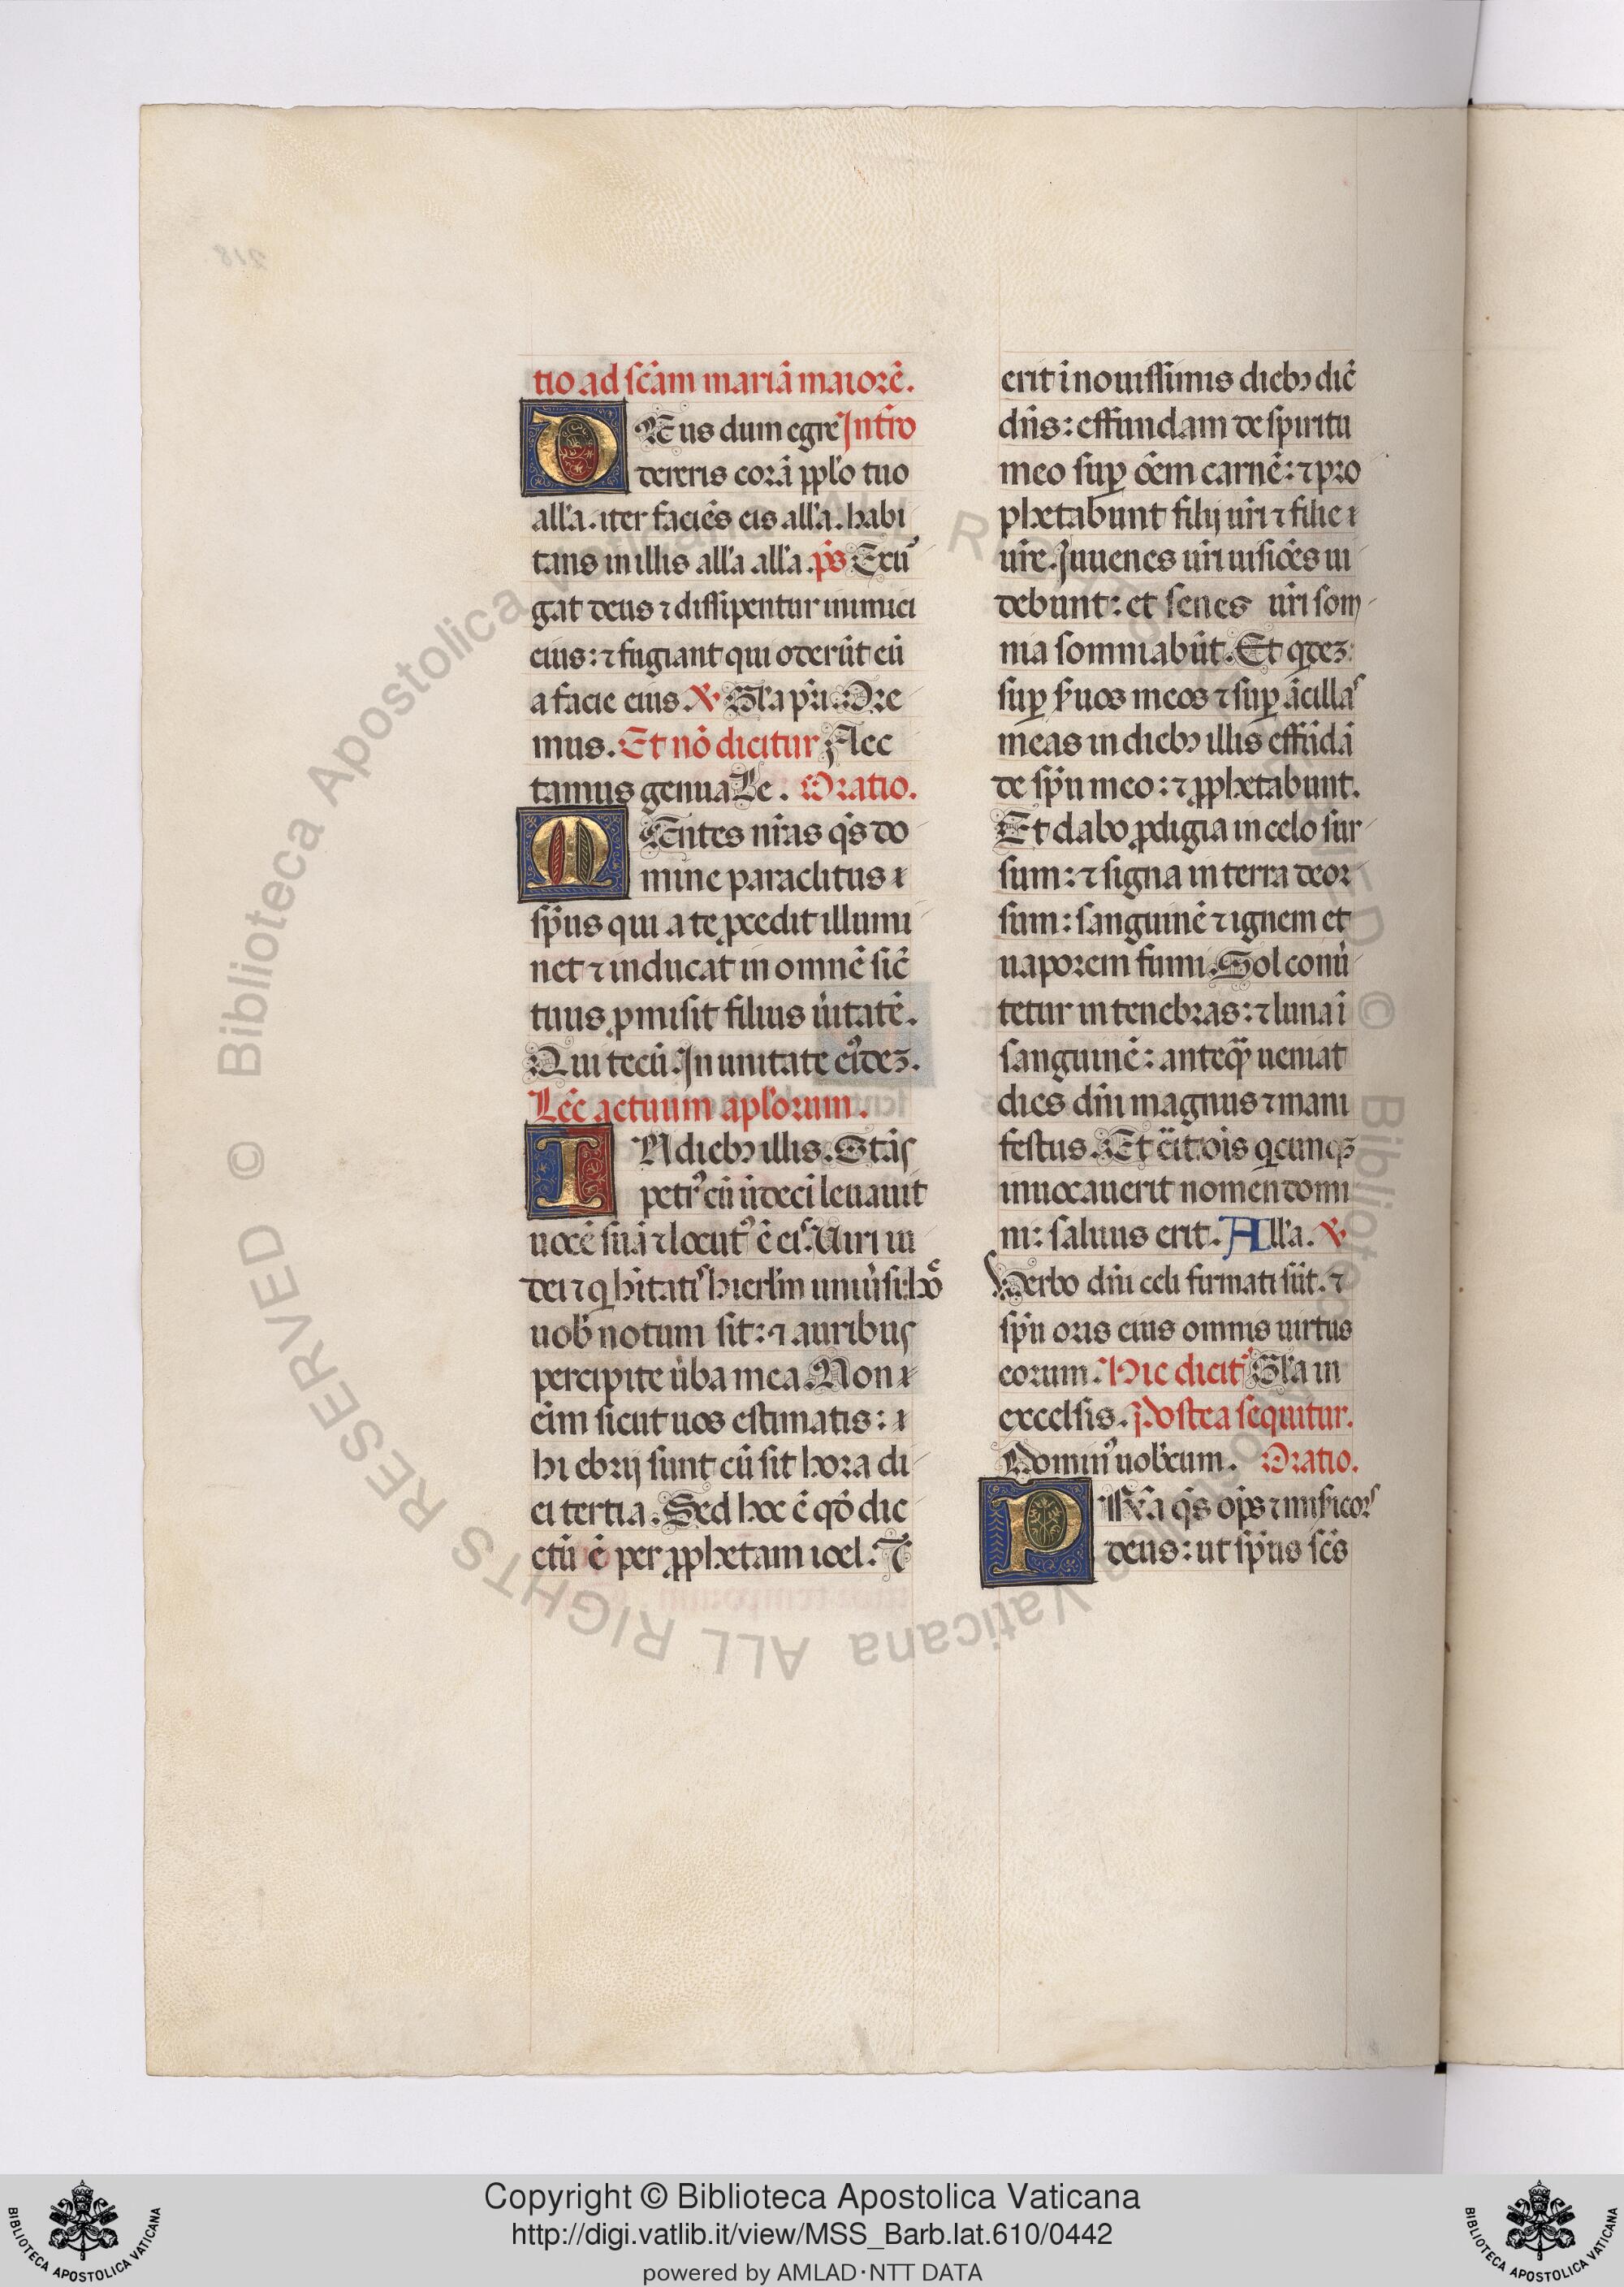 tio ad scām mariā maiorē.
DEus dum egre Intro
dereris corā pplo tuo
alla. iter faciēs eis alla. habi
tans in illis alla alla. ps Exu
gat deus ⁊ dissipentur inimici
eius: ⁊ fugiant qui oderūt eū
a facie eius ℣ Gla pri Ore
mus. Et nō dicitur Flec
tamus genua Le. Oratio.
MEntes nrās qs do
mine paraclitus
spūs qui a te pcedit illumi
net ⁊ inducat in omnē sic̄
tuus pmisit filius uitatē.
Qui tecū. In unitate eidez.
Lec̄ actuum aplorum.
IN dieb illis. Stās
petr' cū undeci leuauit
uocē suā ⁊ locut' ē eis. Uiri iu
dei ⁊ q hītatis hierlm uniūsi: hō
uob notum sit: ⁊ auribus
percipite ūba mea. Non
eīm sicut uos estimatis:
hi ebrij sunt cū sit hora di
ei tertia. Sed hoc ē qō dic
ctū ē per pphetam ioel. ⁊
erit ī nouissimis dieb dic̄
dn̄s: effundam de spiritu
meo sup ōem carnē: ⁊ pro
phetabunt filij uri ⁊ filie
ur̄e. Juuenes uri uisiōes ui
debunt: et senes uri som
nia somniabūt. Et qdez
sup s̄uos meos ⁊ sup ācillas
meas in dieb illis effūdā
de spū meo: ⁊ pphetabunt.
Et dabo pdigia in celo sur
sum: ⁊ signa in terra deor
sum: sanguinē ⁊ ignem et
uaporem fumi. Sol conū
tetur in tenebras: ⁊ luna ī
sanguinē: anteq̄ ueniat
dies dn̄i magnus ⁊ mani
festus. Et ēit: ois qcunqz
inuocauerit nomen domi
ni: saluus erit. Alla. ℣
Verbo dn̄i celi firmati sūt. ⁊
spū oris eius omnis uirtus
eorum. Hic dicit' Gla in
excelsis. Postea sequitur.
Domin' uobcum. Oratio.
PRsta qs ops ⁊ misicors
deus: ut spūs scs
Copyright © Biblioteca Apostolica Vaticana
http://digi.vatlib.it/view/MSS_Barb.lat.610/0442
powered by AMLAD·NTT DATA
© Biblioteca Apostolica Vaticana ALL RIGHTS RESERVED
BIBLIOTECA APOSTOLICA VATICANA
BIBLIOTECA APOSTOLICA VATICANA